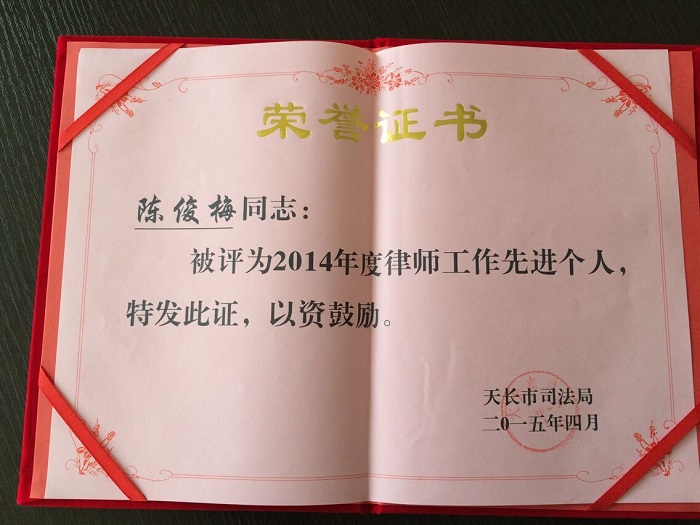 荣誉证书
陈俊梅同志：
被评为2014年度律师工作先进个人，
特发此证，以资鼓励。
天长市司法局
二〇一五年四月